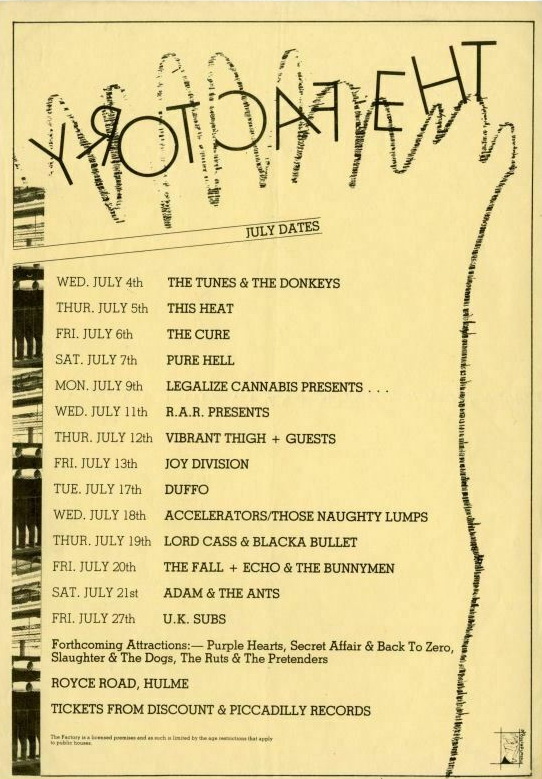 THE FACTORY
JULY DATES
WED. JULY 4th THE TUNES & THE DONKEYS
THUR. JULY 5th THIS HEAT
FRI. JULY 6th THE CURE
SAT. JULY 7th PURE HELL
MON. JULY 9th LEGALIZE CANNABIS PRESENTS . . .
WED. JULY 11th R.A.R. PRESENTS
THUR. JULY 12th VIBRANT THIGH + GUESTS
FRI. JULY 13th JOY DIVISION
TUE. JULY 17th DUFFO
WED. JULY 18th ACCELERATORS/THOSE NAUGHTY LUMPS
THUR. JULY 19th LORD CASS & BLACKA BULLET
FRI. JULY 20th THE FALL + ECHO & THE BUNNYMEN
SAT. JULY 21st ADAM & THE ANTS
FRI. JULY 27th U.K. SUBS
Forthcoming Attractions:— Purple Hearts, Secret Affair & Back To Zero,
Slaughter & The Dogs, The Ruts & The Pretenders
ROYCE ROAD, HULME
TICKETS FROM DISCOUNT & PICCADILLY RECORDS
The Factory is a licensed premises and as such is limited by the age restrictions that apply
to public houses.